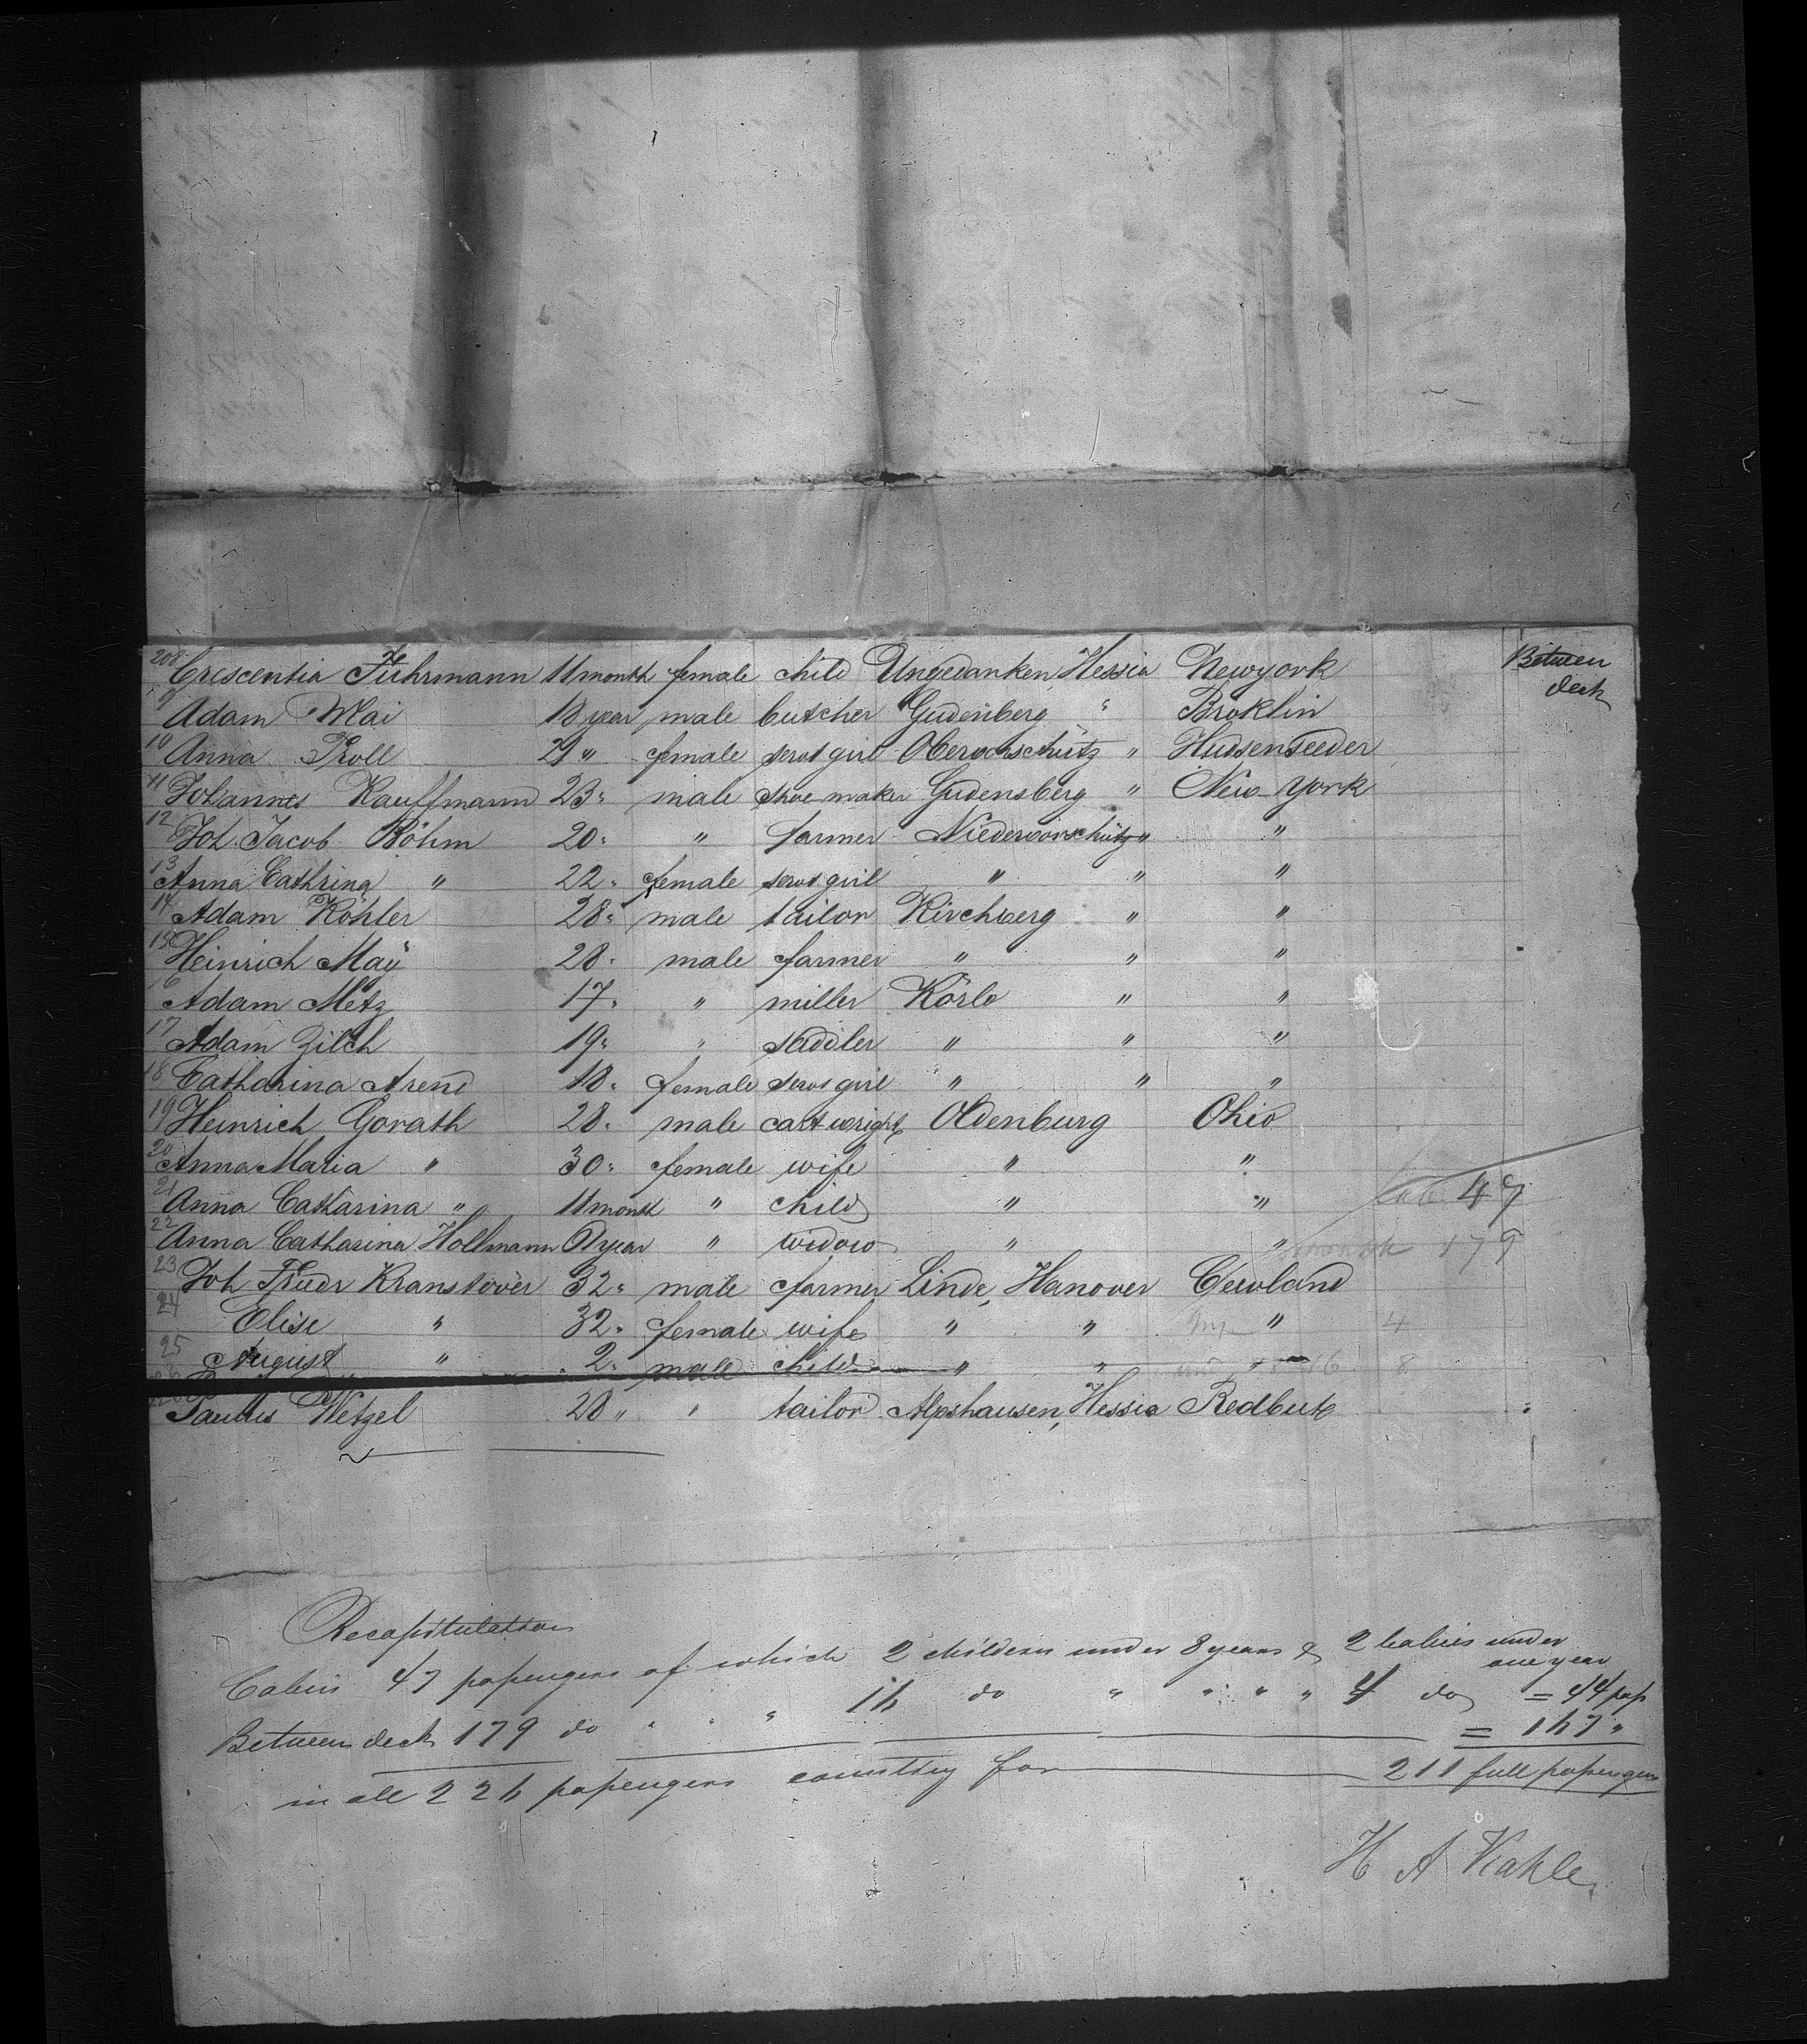 208 Crescentia Fuhrmann 11 month female child Ungedanken, Hessia Newyork Between deck
9 Adam Mai 18 year male butcher Gudenberg " Broklin
10 Anna Kroll 21 " female servt girl Obervorschütz " Hudsenseeder
11 Johannes Kauffmann 23 " male shoe maker Gudensberg " New York
12 Joh. Jacob Böhm 20 " " farmer Niedervorschütz " "
13 Anna Cathrina " 22 " female servt girl " " "
14 Adam Köhler 28 " male tailor Kirchberg " "
15 Heinrich Maÿ 28 " male farmer " " "
16 Adam Metz 17 " " miller Körle " "
17 Adam Zilch 19 " " saddler " " "
18 Catharina Arend 18 " female servt girl " " "
19 Heinrich Gorath 28 " male cartwright Oldenburg Ohio
20 Anna Maria " 30 " female wife " "
21 Anna Catharina " 11 month " child " " Cab 47
22 Anna Catharina Hollmann 61 year " widow " " 179
23 Joh Friedr Kranstöver 32 " male farmer Linde, Hanover Clewland
24 Elise " 32 " female wife " " " 4
25 August " 2 " male child " " " 16 8
Paulus Wetzel 28 " " tailor Alpshausen, Hessia Redbut
Recapitulation
Cabin 47 passengers of which 2 children under 8 years & 2 babies under one year = 44 pass
Between deck 179 do " " " 16 do " " " " 4 do = 167 "
in all 226 passengers counting for 211 full passengers
H A Kahle.